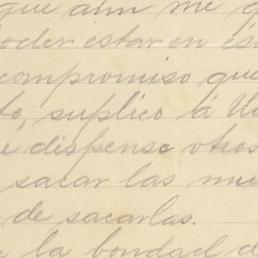 que aún me
poder estar en es
compromiso que
to, suplico á U
e dispense otros
sacar las mu
de sacarlas.
la bondad d